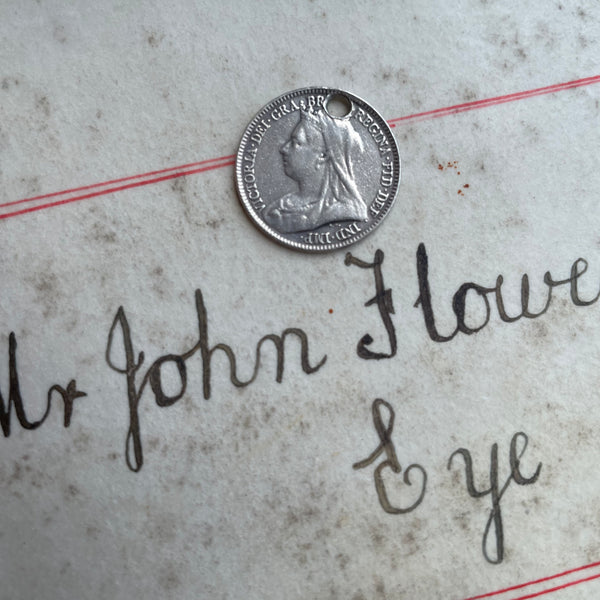 VICTORIA·DEI·GRA·BR REGINA·FID·DEF IND·IMP·
Mr John Flowe
Eye